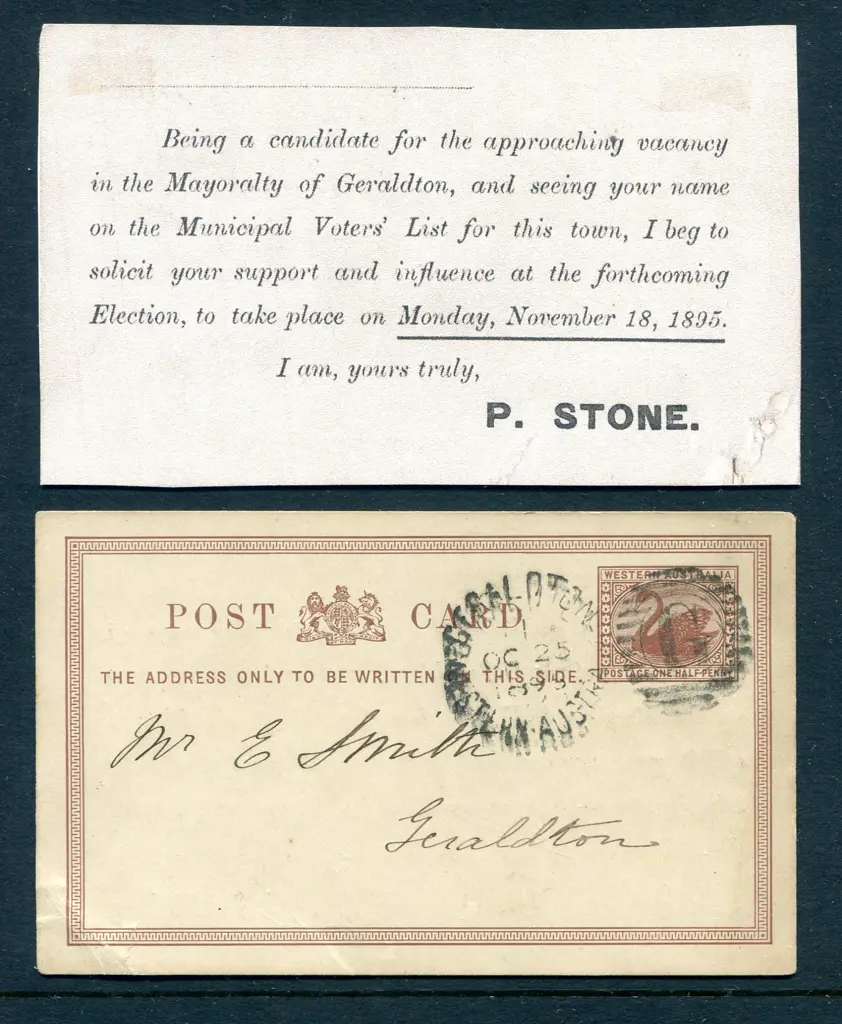 Being a candidate for the approaching vacancy
in the Mayoralty of Geraldton, and seeing your name
on the Municipal Voters' List for this town, I beg to
solicit your support and influence at the forthcoming
Election, to take place on Monday, November 18, 1895.
I am, yours truly,
P. STONE.
WESTERN AUSTRALIA
POST CARD
GERALDTON
OC 25
WESTERN·AUSTRALIA
THE ADDRESS ONLY TO BE WRITTEN ON THIS SIDE.
POSTAGE ONE HALF-PENNY
Mr E Smith
Geraldton